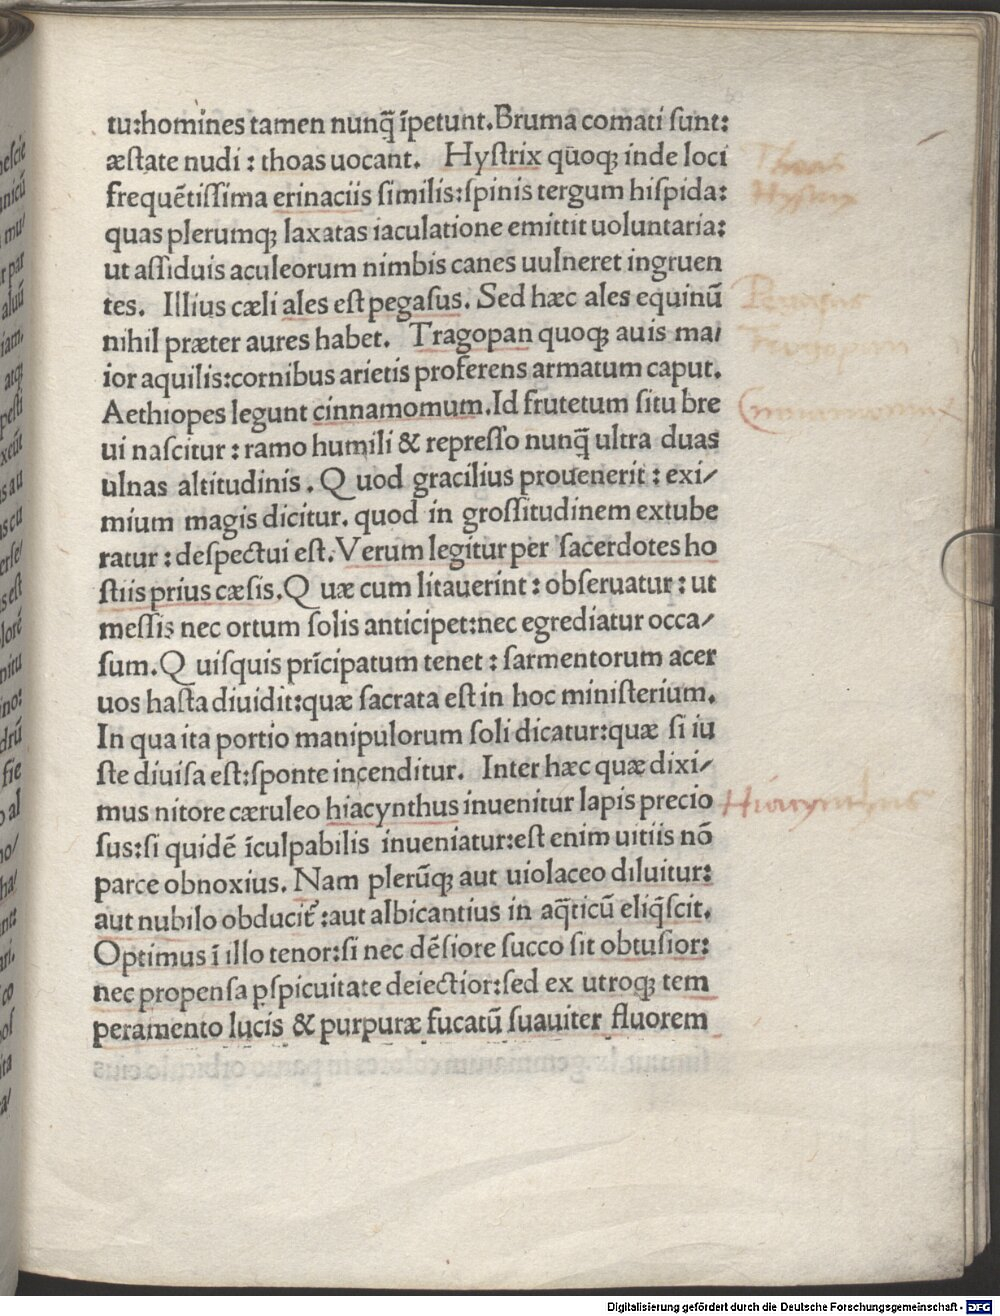 tu:homines tamen nunq̃ ĩpetunt.Bruma comati ſunt:
æſtate nudi : thoas uocant. Hyſtrix quoqꝫ inde loci
frequẽtiſſima erinaciis ſimilis:ſpinis tergum hiſpida:
quas plerumqꝫ laxatas iaculatione emittit uoluntaria:
ut aſſiduis aculeorum nimbis canes uulneret ingruen
tes. Illius cæli ales eſt pegaſus. Sed hæc ales equinũ
nihil præter aures habet. Tragopan quoqꝫ auis ma/
ior aquilis:cornibus arietis proferens armatum caput.
Aethiopes legunt cinnamomum.Id frutetum ſitu bre
ui naſcitur : ramo humili & repreſſo nunq̃ ultra duas
ulnas altitudinis . Q uod gracilius prouenerit : exi/
mium magis dicitur. quod in groſſitudinem extube
ratur : deſpectui eſt. Verum legitur per ſacerdotes ho
ſtiis prius cæſis.Q uæ cum litauerint : obſeruatur : ut
meſſis nec ortum ſolis anticipet:nec egrediatur occa/
ſum.Q uiſquis prĩcipatum tenet : ſarmentorum acer
uos haſta diuidit:quæ ſacrata eſt in hoc miniſterium.
In qua ita portio manipulorum ſoli dicatur:quæ ſi iu
ſte diuiſa eſt:ſponte incenditur. Inter hæc quæ dixi/
mus nitore cæruleo hiacynthus inuenitur lapis precio
ſus:ſi quidẽ ĩculpabilis inueniatur:eſt enim uitiis nõ
parce obnoxius. Nam plerũqꝫ aut uiolaceo diluitur:
aut nubilo obducit᷑ :aut albicantius in aq̃ticũ eliq̃ſcit.
Optimus ĩ illo tenor:ſi nec dẽſiore ſucco ſit obtuſior:
nec propenſa ꝑſpicuitate deiectior:ſed ex utroqꝫ tem
peramento lucis & purpuræ fucatũ ſuauiter fluorem
Thoas
Hyſtrix
Pegasus
Tragopan
Hiacynthus
Digitalisierung gefördert durch die Deutsche Forschungsgemeinschaft - DFG